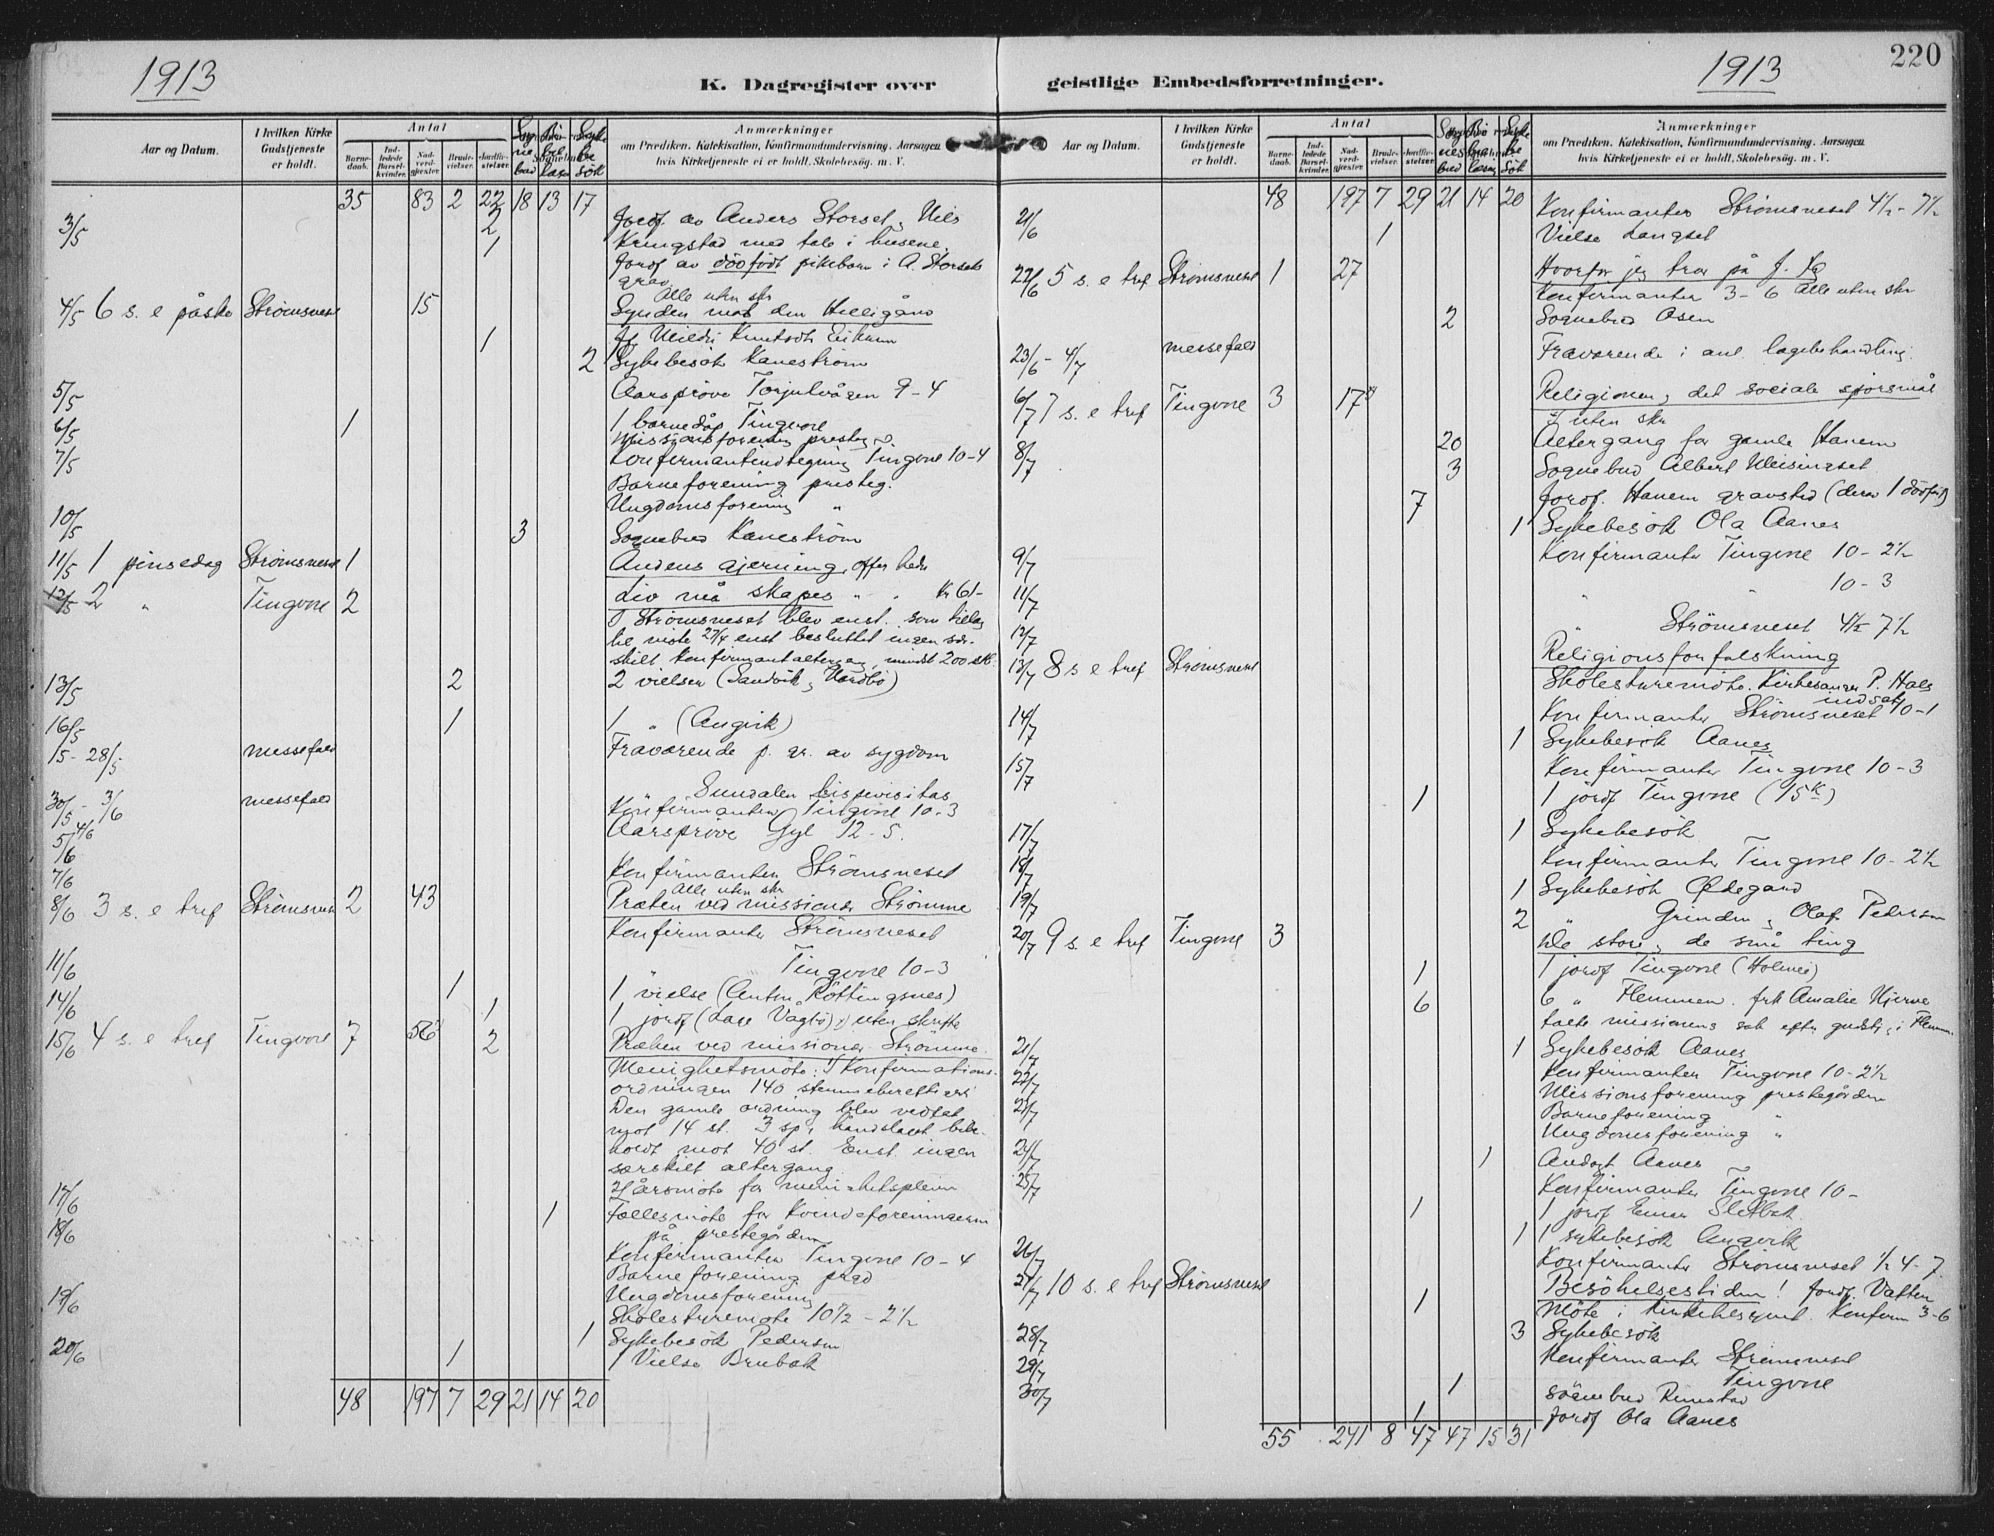 1913
K. Dagregister over
Aar og Datum.
I hvilken Kirke Gudstjeneste er holdt.
Antal
Barnedaab. Indledede Barselkvinder. Nadverdgjæster. Brudevielser. Jordfæstelser.
Anmærkninger
om Prædiken. Katekisation, Konfirmandundervisning. Aarsagen
hvis Kirketjeneste ei er holdt. Skolebesøg. m. V.
35 83 2 22 18 13 17
3/5 2 Jordf. av Anders Storset, Nils
Kringstad med tale i husene.
1 Jordf av dödfödt pikebarn i A. Storsets
grav
Alle uten skr
4/5 6 s. e påske Strömsneset 15 Synden mot den Helligånd
1
2 Sykebesök Kaneström
5/5 Aarspröve Torjulvågen 9-4
6/5 1 1 barnedåp Tingvoll
Missionsforening presteg.
7/5 Konfirmantindtegning Tingvoll 10-4
Barneforening presteg.
Ungdomsforening "
10/5 3 Sognebud Kaneström
11/5 1 pinsedag Strömsneset 1 Åndens gjerning, offer
12/5 2 " Tingvoll 2 Liv må skapes " " kr 61-
I Strömsneset blev enst. som
27/4 enst besluttet ingen sær-
skilt konfirmantaltergang, mindst 200 stk.
13/5 2 2 vielser (Sandvik, Nordbö)
16/5 1 1 " (Angvik)
15-28/5 messefald Fraværende p. gr. av sygdom
30/5-3/6 messefald " Sundalen bispevisitas
4/6 Konfirmanter Tingvoll 10-3
5/6 Aarspröve Gyl 12-5.
7/6 Konfirmanter Strömsneset
Alle uten skr
8/6 3 s. e tref Strömsneset 2 43 Præken ved missionær Strömme
Konfirmanter Strömsneset
11/6 " Tingvoll 10-3
14/6 1 1 vielse (Anton Röttingsnes)
1 1 jordf
15/6 4 s. e tref Tingvoll 7 56 2 Præken ved missionær Strömme.
Menighetsmöte: Konfirmations-
ordningen 140 stemmeberettiget
Den gamle ordning blev vedtat
mot 14 st. 3 sp. håndslaget bibe-
holdt mot 40 st. Enst. ingen
særskilt altergang.
17/6 Årsmöte for menighetspleien
18/6 1 Fællesmöte for Kvindeforeningerne
på prestegården
Konfirmanter Tingvoll 10-4
Barneforening
Ungdomsforening
19/6 Skolestyremöte 10½-2½
1 Sykebesök Pedersen
20/6 1 1 Vielse Brubak
48 197 7 29 21 14 20
220
1913
geistlige Embedsforretninger.
Aar og Datum.
I hvilken Kirke Gudstjeneste er holdt.
Antal
Barnedaab. Indledede Barselkvinder. Nadverdgjæster. Brudevielser. Jordfæstelser.
Anmærkninger
om Prædiken. Katekisation, Konfirmandundervisning. Aarsagen
hvis Kirketjeneste ei er holdt. Skolebesög. m. V.
48 197 7 29 21 14 20 Konfirmanter Strömsneset 4½-7½
21/6 1 Vielse Langset
22/6 5 s. e tref Strömsneset 1 27 Hvorfor jeg tror på J. Kr
Konfirmanter 3-6 Alle uten skr
2 Sognebud Åsen
23/6-4/7 messefald Fraværende i anl. lægebehandling.
6/7 7 s. e tref Tingvoll 3 17 Religionen, det sociale spörsmål
uten skr
8/7 20 Altergang for gamle Hanem
3 Sognebud Albert Meisingset
7 Jordf. Hanem gravsted (derav 1 dödfödt)
1 Sykebesök Ola Aanes
9/7 Konfirmanter Tingvoll 10-2½
11/7 " " 10-3
12/7 " Strömsneset 4½ 7½
13/7 8 s e tref Strömsneset Religionsforfalskning
Skolestyremöte. Kirkesanger P. Hals
indsat
14/7 Konfirmanter Strömsneset 10-1
1 Sykebesök Aanes
15/7 Konfirmanter Tingvoll 10-3
1 1 jordf Tingvoll
17/7 1 Sykebesök
18/7 Konfirmanter Tingvoll 10-2½
19/7 1 Sykebesök Ødegård
2 " Grinden, Olaf Pedersen
20/7 9 s. e tref Tingvoll 3 De store, de små ting
1 1 jordf Tingvoll (Holmei)
6 6 " Flemmen. frk Amalie Hjerne
talte missionens sak efter gudstj. i Flemm.
21/7 1 Sykebesök Aanes
22/7 Konfirmanter Tingvoll 10-2½
23/7 Missionsforening prestegården
Barneforening "
Ungdomsforening "
24/7 1 Andagt Aanes
25/7 Konfirmanter Tingvoll 10-
1 1 jordf Einar Sletbak
1 1 sykebesök Angvik
26/7 Konfirmanter Strömsneset ½ 4-7
27/7 10 s. e tref Strömsneset Besökelsestiden! Jordf. Vatten
1 Möte i Konfirm 3-6
28/7 3 Sykebesök
29/7 Konfirmanter Strömsneset
Tingvoll
30/7 1 Sognebud Rimstad
1 Jordf Ola Aanes
55 241 8 47 47 15 31